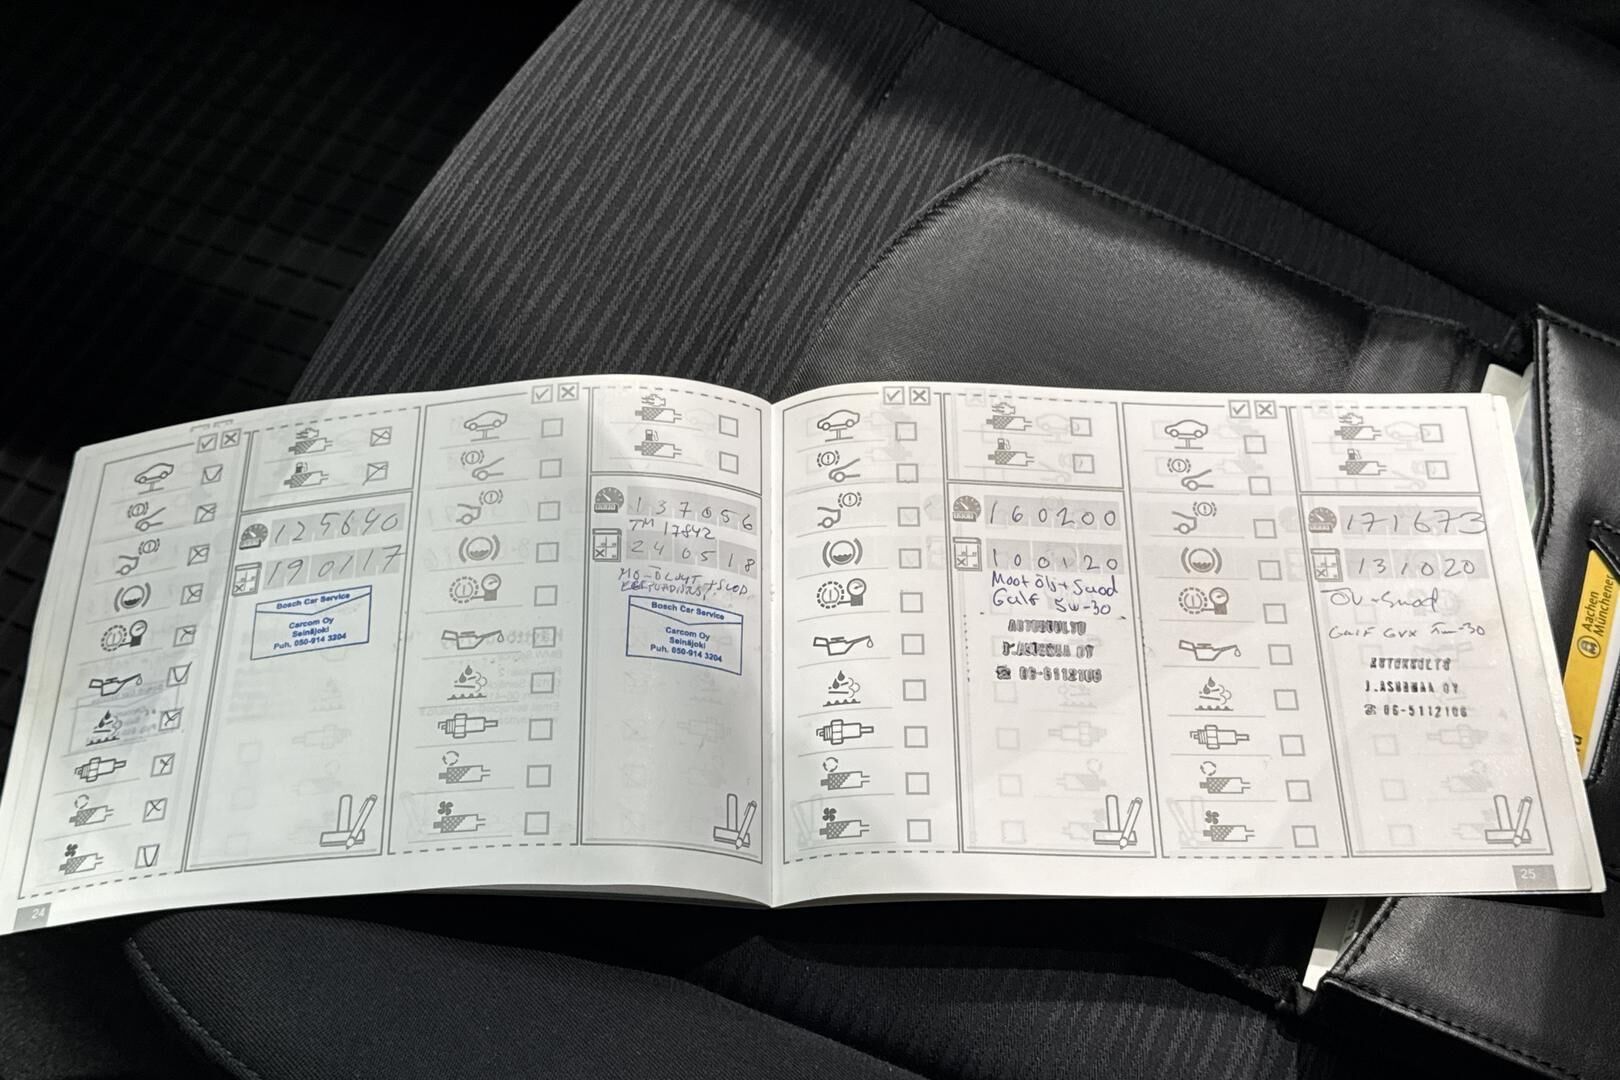 125640
190117
Bosch Car Service
Carcom Oy
Seinäjoki
Puh. 050-914 3204
24
137056
TM 17842
240518
MO-ÖLJYT + SUOD.
Bosch Car Service
Carcom Oy
Seinäjoki
Puh. 050-914 3204
160200
100120
Moot ölj + Suod
Gulf 5W-30
AUTOHUOLTO
OY
171673
131020
Öl + Suod
Gulf GVX 5W-30
AUTOHUOLTO
OY
06-5112106
25
Aachen
Münchener